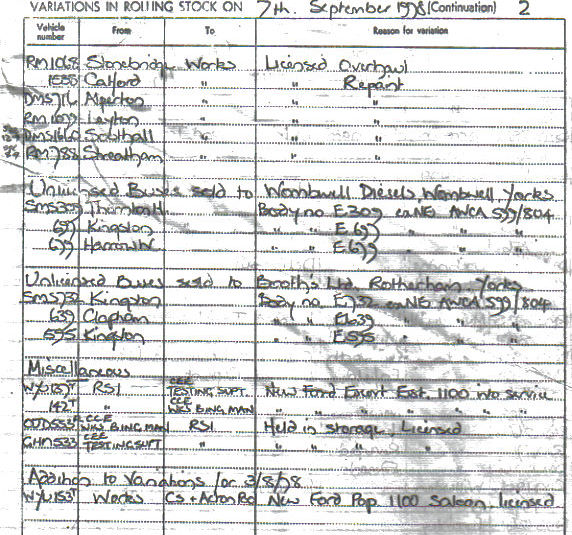 VARIATIONS IN ROLLING STOCK ON 7th. September 1978 (Continuation) 2
Vehicle number From To Reason for variation
RM1068 Stonebridge Works Licensed Overhaul
1585 Catford " " Repaint
DMS716 Alperton " " "
RM1699 Leyton " " "
DMS1660 Southall " " "
RM788 Streatham " " "
Unlicensed Buses sold to Wombwell Diesels, Wombwell, Yorks
SMS309 Thornton H. Body no E309 ex NEL AWCA 599/804
697 Kingston " " E697 " " "
699 Harrow W. " " E699 " " "
Unlicensed Buses sold to Booth's Ltd, Rotherham Yorks
SMS732 Kingston Body no E732 ex NEL AWCA 599/804
639 Clapham " " E639 " " "
595 Kingston " " E595 " " "
Miscellaneous
WYV137T RS1 CEE TESTING SUPT. New Ford Escort Est. 1100 into service
142T " CCE WKS BING MAN " " " " " " "
CCE WKS BING MAN RS1 Held in storage, Licensed
GHN533 CEE TESTING SUPT " " " " "
Addition to Variations for 3/8/78
WYV153T Works CS + Acton Rd New Ford Pop 1100 Saloon, licensed